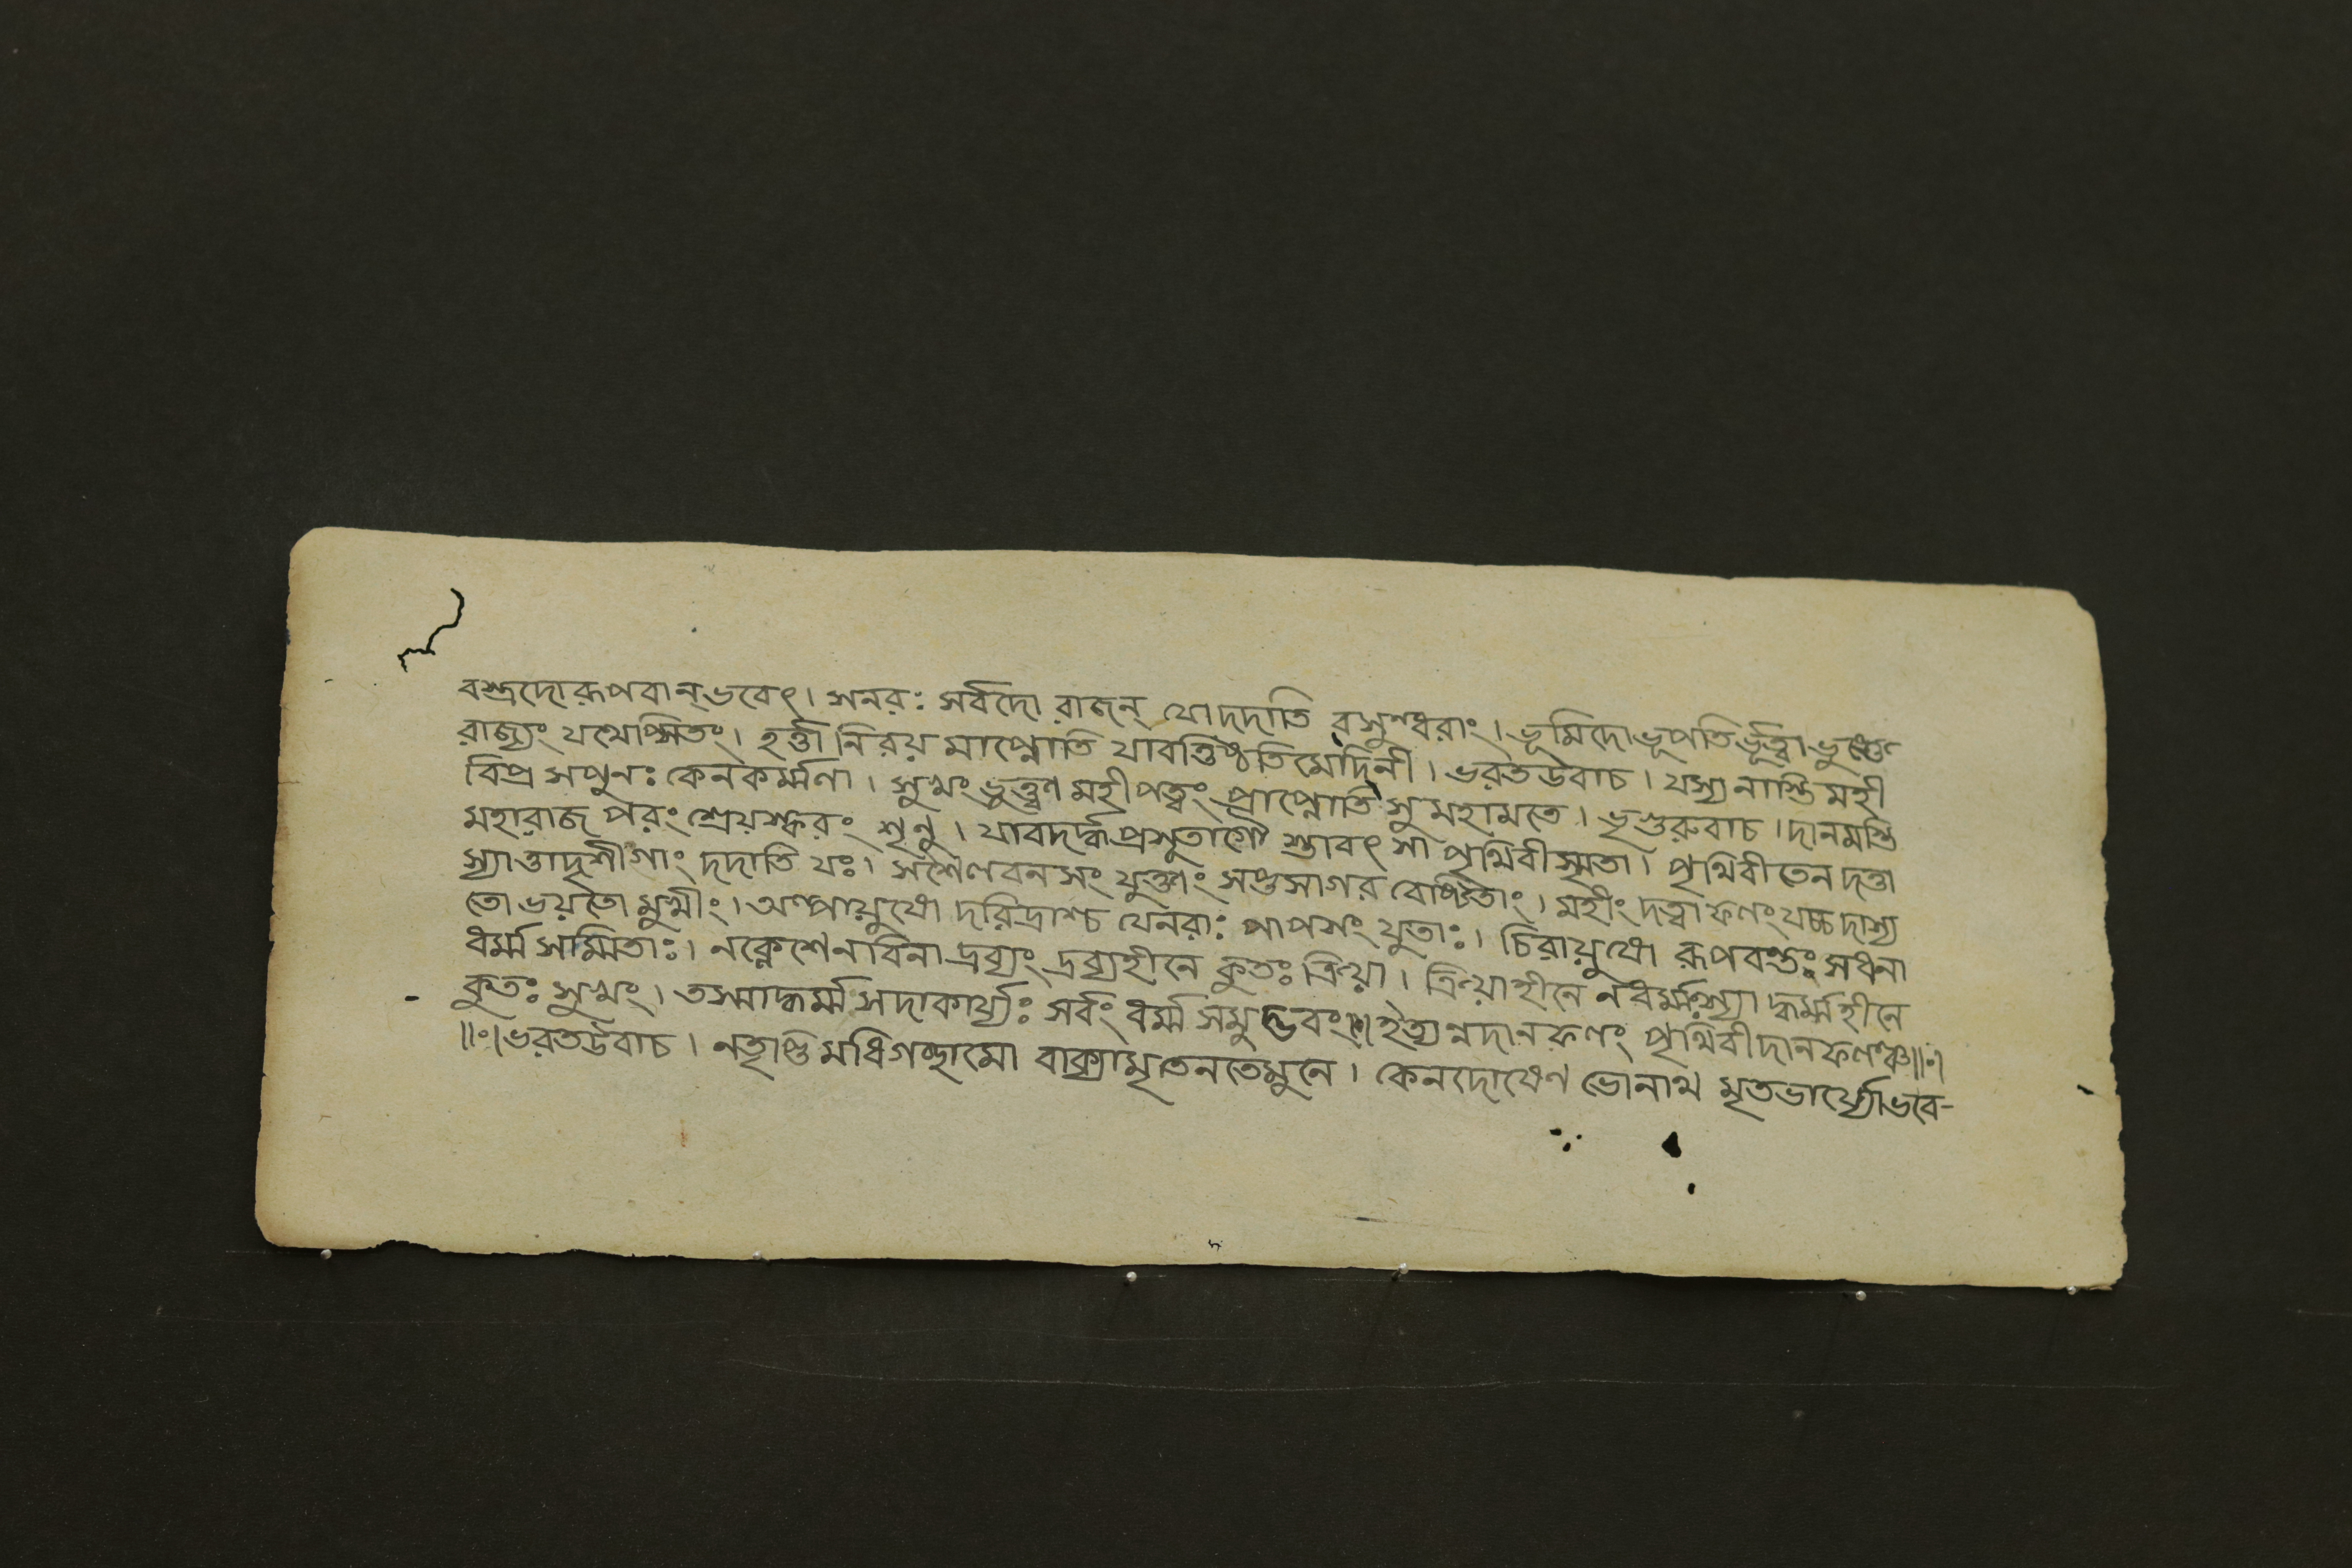 বস্ত্রদোরূপবান্ভবেৎ। সনরঃ সর্বদো রাজন্ যোদদাতি বসুন্ধরাং। ভূমিদোভূপতির্ভূত্বা ভুঙ্ক্তে
রাজ্যং যথেপ্সিতং। হর্ত্তা নিরয়মাপ্নোতি যাবত্তিষ্ঠতিমেদিনী। ভরতউবাচ। যস্যনাস্তিমহী
বিপ্র সপুনঃ কেনকর্ম্মণা। সুখং ভুক্ত্বা মহীপত্বং প্রাপ্নোতি সুমহামতে। ভৃগুরুবাচ। দানমস্তি
মহারাজ পরংশ্রেয়স্করং শৃনু। যাবদর্দ্ধপ্রসুতাগৌ স্তাবৎ সা পৃথিবীস্মৃতা। পৃথিবীতেন দত্তা
স্যাত্তাদৃশীগাং দদাতি যঃ। সশৈলবনসং যুক্তাং সপ্তসাগর বেষ্টিতাং। মহীং দত্বা ফলংযচ্চ দাস্য
তোভয়তোমুখীং। অল্পায়ুষো দরিদ্রাশ্চ যেনরাঃ পাপসং যুতাঃ। চিরায়ুষো রূপবন্তঃ সধনা
ধর্ম্মসম্মিতাঃ। নক্লেশেনবিনাদ্রব্যং দ্রব্যহীনে কুতঃ ক্রিয়া। ক্রিয়াহীনে নধর্ম্মস্যা দ্ধর্ম্মহীনে
কুতঃ সুখং। তস্মাদ্ধর্ম্মঃসদাকার্য্যঃ সর্বং ধর্ম্মসমুদ্ভবং॥ ইত্যন্নদানফলং পৃথিবীদানফলঞ্চ॥ঃ॥
॥ঃ॥ভরতউবাচ। নতৃপ্তিমধিগচ্ছামো বাক্যামৃতেনতেমুনে। কেনদোষেণ ভোনাথ মৃতভার্য্যোভবে-